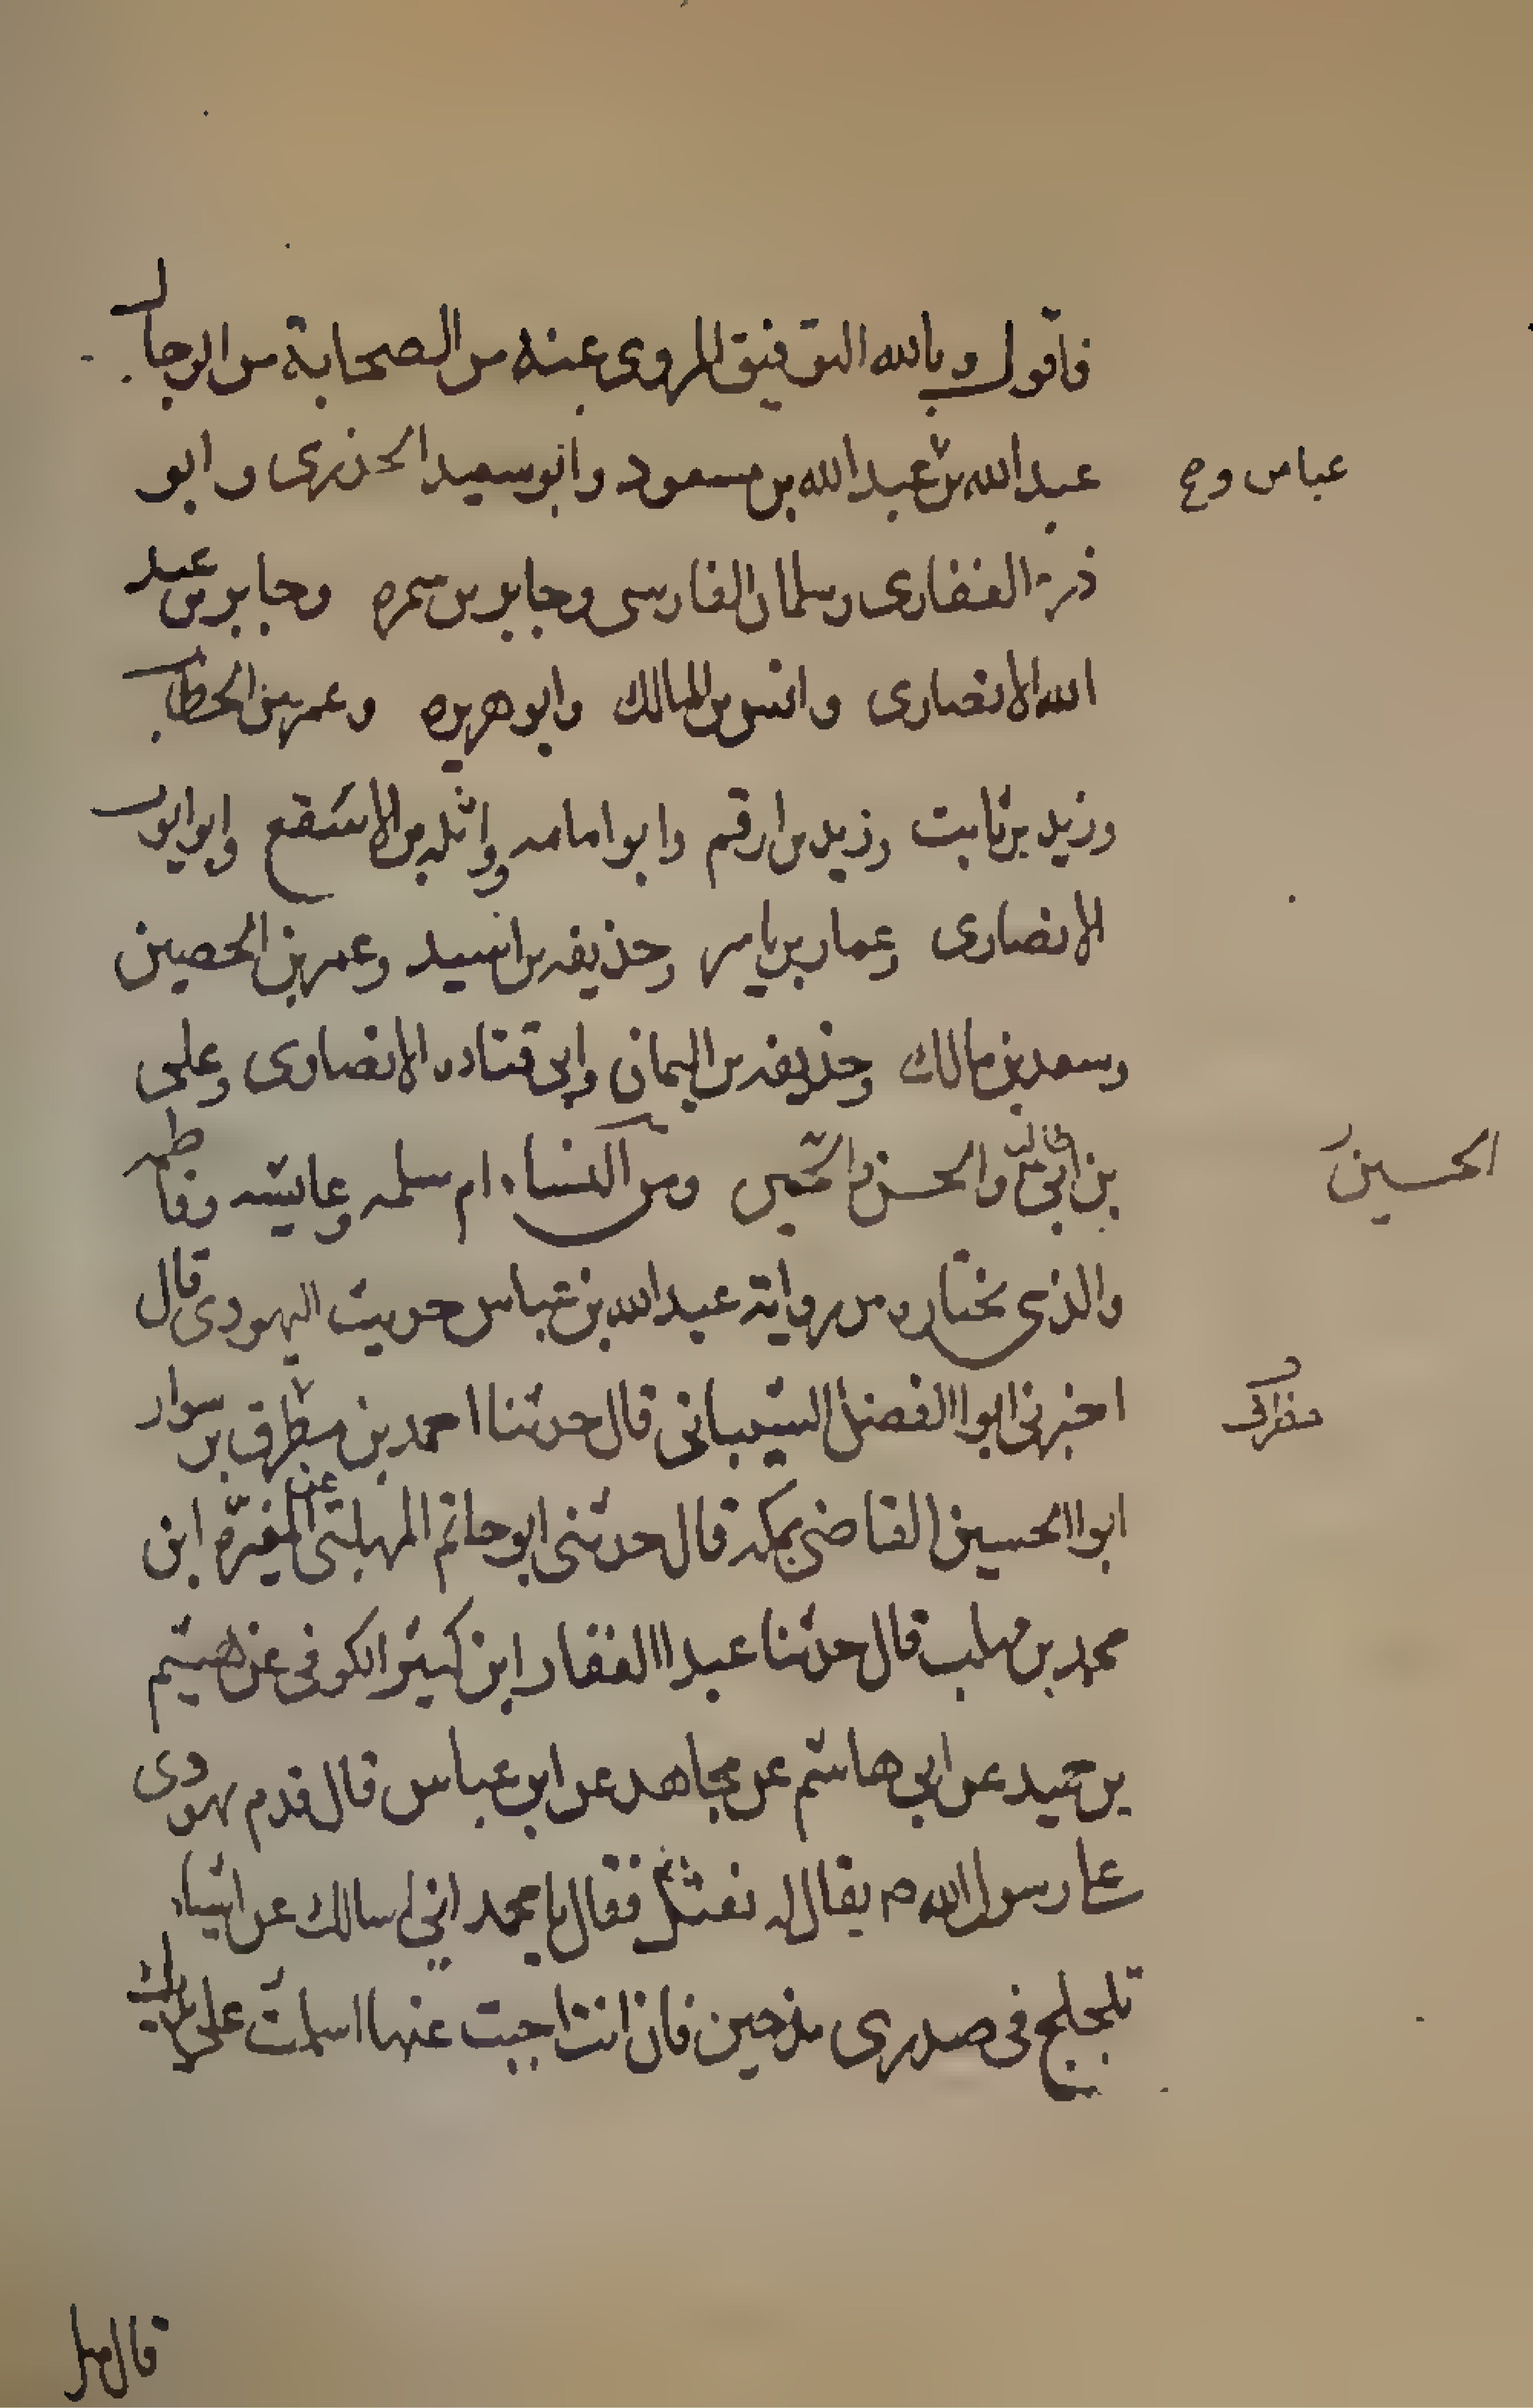 فاقول وبالله التوفيق المروى عنه من الصحابة من الرجال
عبدالله بن عبدالله بن مسعود وابو سعيد الخدرى وابو
عباس وح
ذر الغفارى وسلمان الفارسى وجابر بن سمره وجابر بن عبد
الله الانصارى وانس بن المالك وابو هريره وعمر بن الخطاب
وزيد بن ثابت وزيد بن ارقم وابو امامه وواثله بن الاسقع وابو ايوب
الانصارى وعمار بن ياسر وحذيفه بن اسيد وعمر بن الحصين
وسعد بن مالك وحذيفه بن اليمانى وابى قتاده الانصارى وعلى
بن ابى طالب والحسن و ومن النساء ام سلمه وعايشه وفاطمه
الحسين
والذى نختاره من رواية عبدالله بن عباس حديث اليهودى قال
اخبرنى ابوا الفضل الشيبانى قال حدثنا احمد بن مطرق بن سوار
ابوا الحسين القاضى بمكه قال حدثنى ابو حاتم المهلبى عن المغيره ابن
محمد بن مهلب قال حدثنا عبد االغفار ابن كثير الكوفى عن هيثم
بن حميد عن ابى هاشم عن مجاهد عن ابن عباس قال قدم يهودى
على رسول الله ص يقال له نعثل فقال يا محمد انى اسالك عن اشياء
تلجلج فى صدرى منذ حين فان انت اجبت عنها اسلمت على يديك
قال